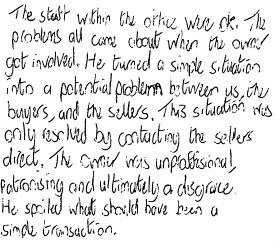 The staff within the office were ok. The
problems all came about when the owner
got involved. He turned a simple situation
into a potential problem between us, the
buyers, and the sellers. This situation was
only resolved by contacting the sellers
direct. The owner was unproffesional,
patronising and ultimately a disgrace.
He spoiled what should have been a
simple transaction.